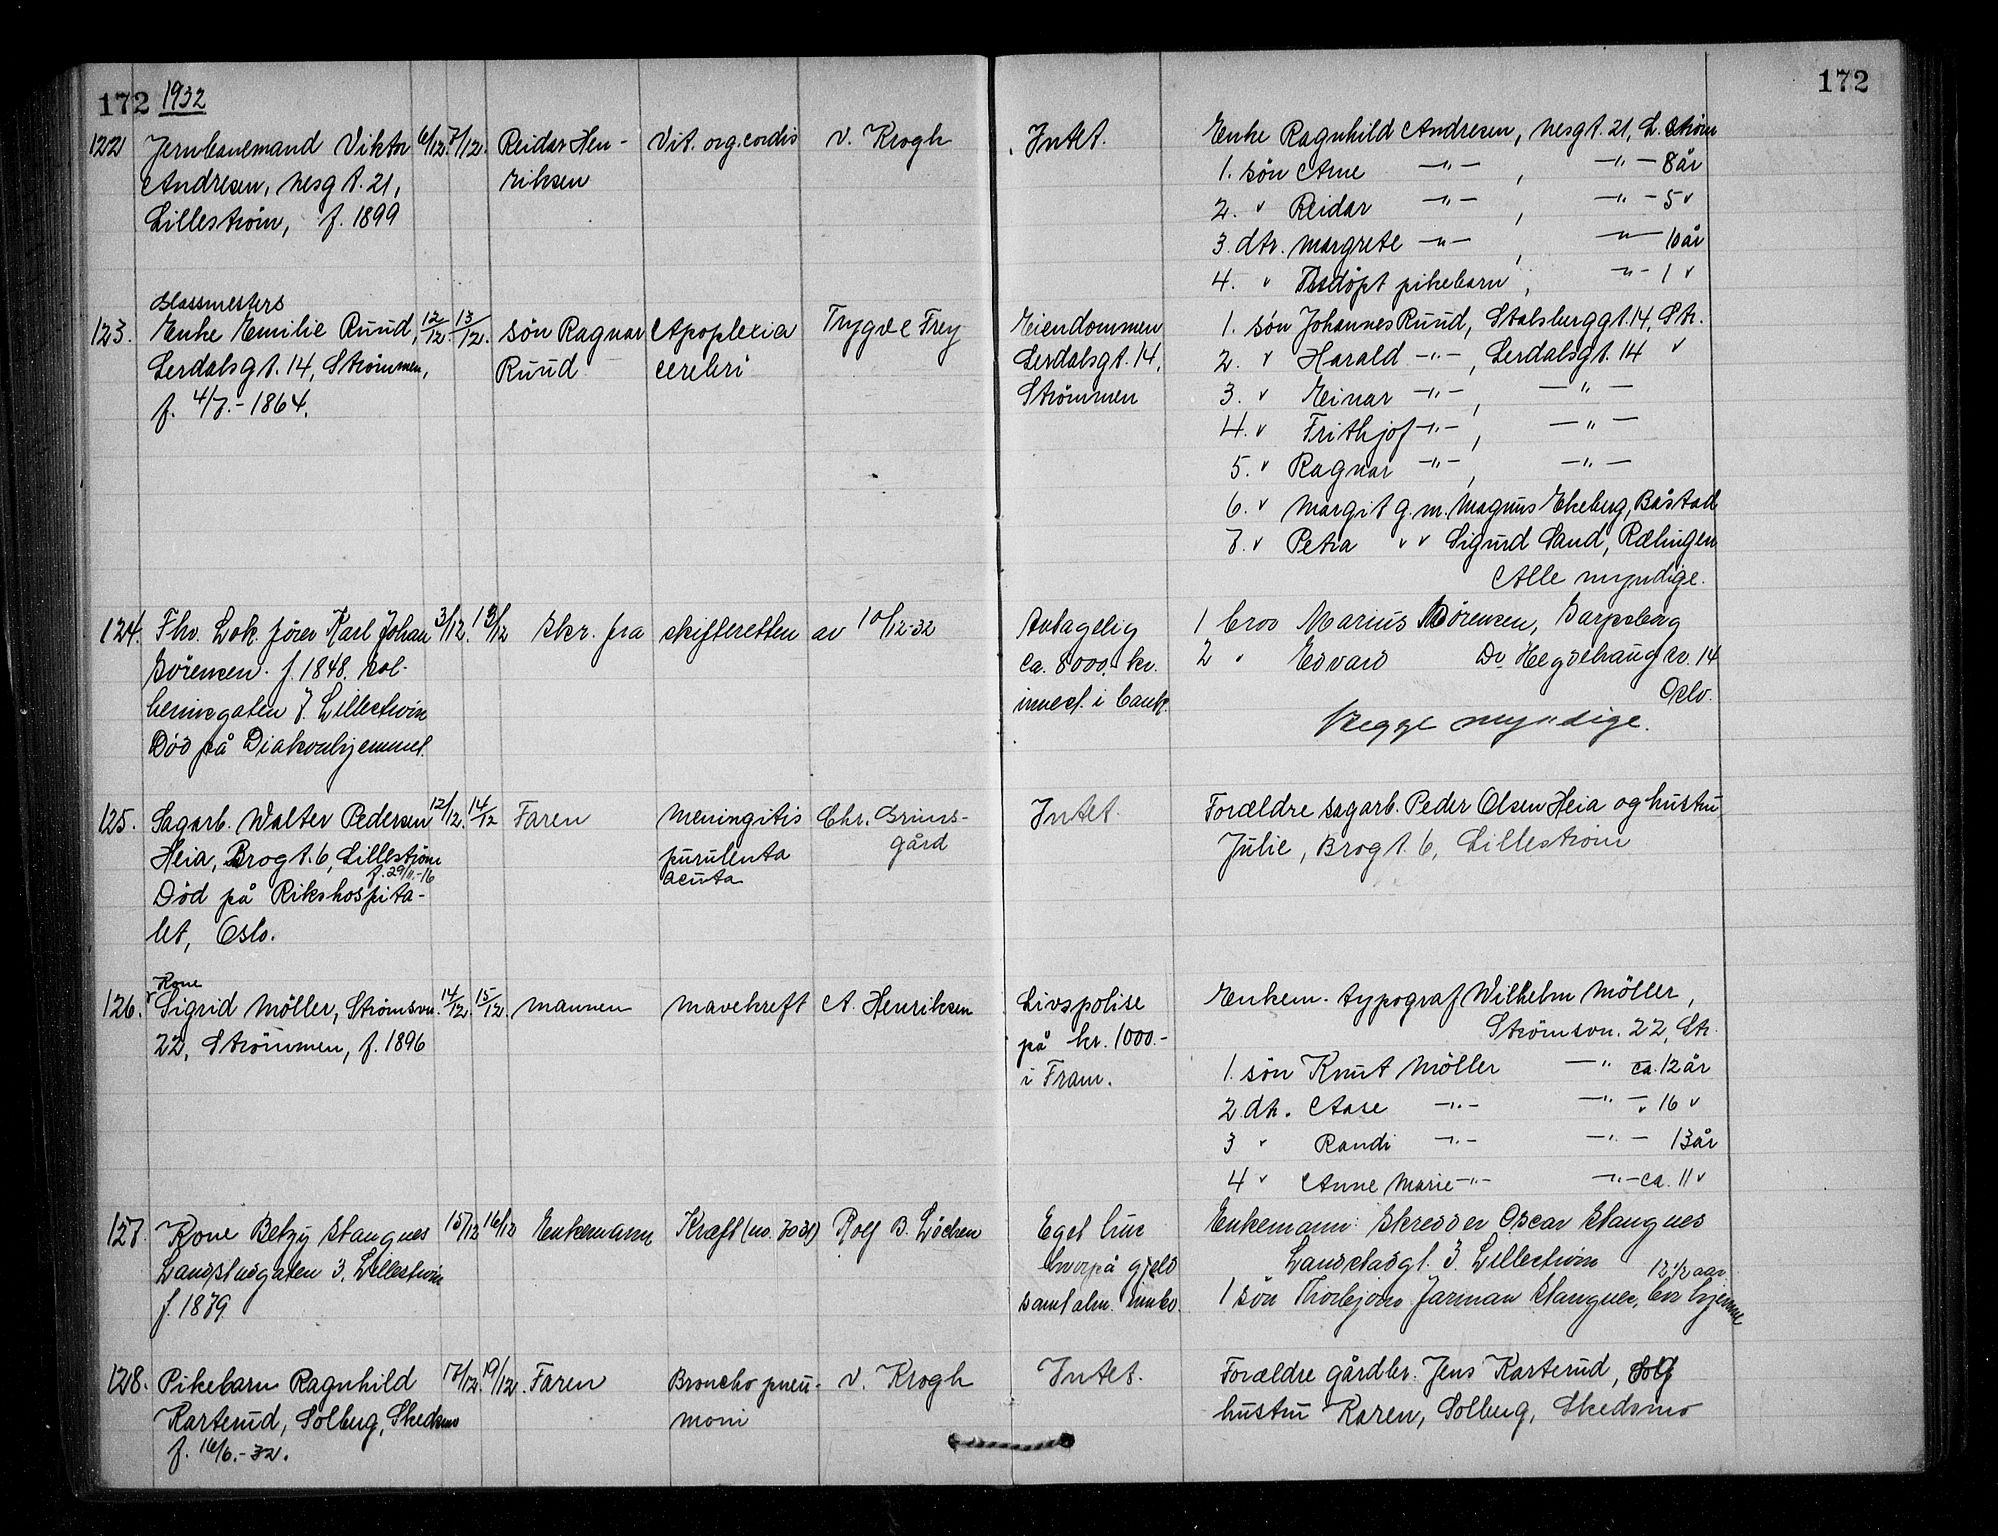 172 1932 172
122 Jernbanemand Viktor 6/12. 7/12. Reidar Hen- Vit. org. cordis v. Krogh Intet. Enke Ragnhild Andresen, Nesgt. 21, L.strøm
Andresen, Nesgt. 21, riksen 1. søn Arne —"— , —"— 8 år
Lillestrøm, f. 1899 2. " Reidar —"— , —"— 5 "
3. dtr. Margrete —"— , —"— 10 år
4. " Udøpt pikebarn, —"— 1 "
Glassmesters
123. Enke Emilie Ruud, 12/12. 13/12. søn Ragnar Apoplexia Trygve Frey Eiendommen 1. søn Johannes Ruud, Stalsberggt. 14, Str.
Lerdalsgt. 14, Strømmen, Ruud cerebri Lerdalsgt. 14, 2. " Harald —"—, Lerdalsgt. 14 "
f. 4/7.-1864. Strømmen 3. " Einar —"—, —"—
4. " Frithjof —"—, —"—
5. " Ragnar —"—, —"—
6. " Margit g.m. Magnus Ekeberg, Båstad
7. " Petra " " Sigurd Sand, Rælingen
Alle myndige.
124. Fhv. Lok.fører Karl Johan 3/12. 13/12 Skr. fra skifteretten av 10/12-32 Antagelig 1 bror Marius Sørensen, Sarpsborg
Sørensen. f. 1848. Sol- ca. 8000,- kr. 2 " Edvard Do Hegdehaugsv. 14
heimsgaten 7. Lillestrøm innest. i bank. Oslo.
Død på Diakonhjemmet. Begge myndige.
125. Sagarb. Walter Pedersen 12/12. 14/12 Faren Meningitis Chr. Grims- Intet. Forældre sagarb. Peder Olsen Heia og hustru
Heia, Brogt. 6, Lillestrøm purulenta gård Julie, Brogt. 6, Lillestrøm
f. 29/11.-16 acuta
Død på Rikshospita-
let, Oslo.
Kone
126. Sigrid Möller, Strømsvn. 14/12. 15/12. mannen mavekreft A. Henriksen Livspolise Enkem. typograf Wilhelm Möller,
22, Strømmen, f. 1896 på kr. 1000.- Strømsvn. 22, Str.
i Fram. 1. søn Knut Möller —"— ca. 12 år
2 dtr. Aase —"— —"— " 16 "
3 " Randi —"— —"— 13 år
4 " Anne Marie —"— —"— ca. 11 "
127. Kone Betzy Stangnes 15/12 16/12 Enkemann Kræft (no. 7031) Rolf B. Løchen Eget hus Enkemann: Skrædder Oscar Stangnes
Landstadsgaten 3. Lillestrøm hvorpå gjeld Landstadsgt. 3. Lillestrøm 12 1/2 aar.
f. 1879 samt alm. innbo. 1 søn Thorbjørn Jarman Stangnes, bor hjemme
128. Pikebarn Ragnhild 17/12. 19/12. Faren Broncho pneu- v. Krogh Intet. Forældre gårdbr. Jens Karterud, og
Karterud, Solberg, Skedsmo moni hustru Karen, Solberg, Skedsmo
f. 16/6.-32.